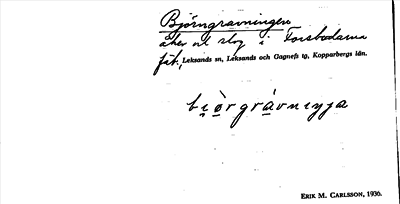 Björngravningen
åker o slog i Forsbodarna
fäb., Leksands sn, Leksands och Gagnefs tg, Kopparbergs län.
bi̯ò̱rgrà̱vnıŋja
ERIK M. CARLSSON, 1936.